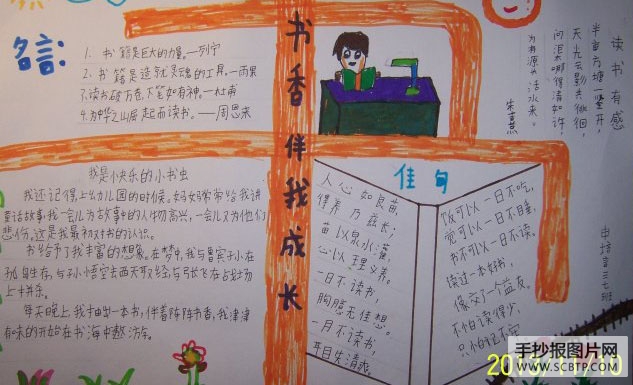 名言:
1. 书籍是巨大的力量。—列宁
2. 书籍是造就灵魂的工具。—雨果
3. 读书破万卷,下笔如有神。—杜甫
4. 为中华之崛起而读书。——周恩来
书香伴我成长
读书有感
半亩方塘一鉴开,
天光云影共徘徊,
问渠那哪得清如许,
为有源头活水来。
朱熹
我是小快乐的小书虫
我还记得上幼儿园的时候。妈妈常常给我讲
童话故事,我一会儿为故事中的人物高兴,一会儿又为他们
悲伤,这是我最初对书的认识。
书给予了我丰富的想象。在梦中,我与鲁宾孙在
孤岛生存,与孙悟空去西天取经,与张飞在战场
上拼杀。
每天晚上,我卡由一本书,伴着阵阵书香,我津津
有味的开始在书海中遨游。
佳句
人心如良苗,
得养乃滋长;
苗以泉水灌,
心以理义养。
一日不读书,
胸臆无佳想。
一月不读书,
耳目失清爽。
饭可以一日不吃,
觉可以一日不睡,
书不可以一日不读。
读过一本好书,
像交了一个益友。
不怕读得少,
只怕记不牢
三七班
手抄报图片网
WWW.SCBTP.COM